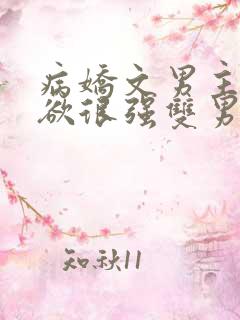 病嬌文男主
欲很强雙男
知秋11